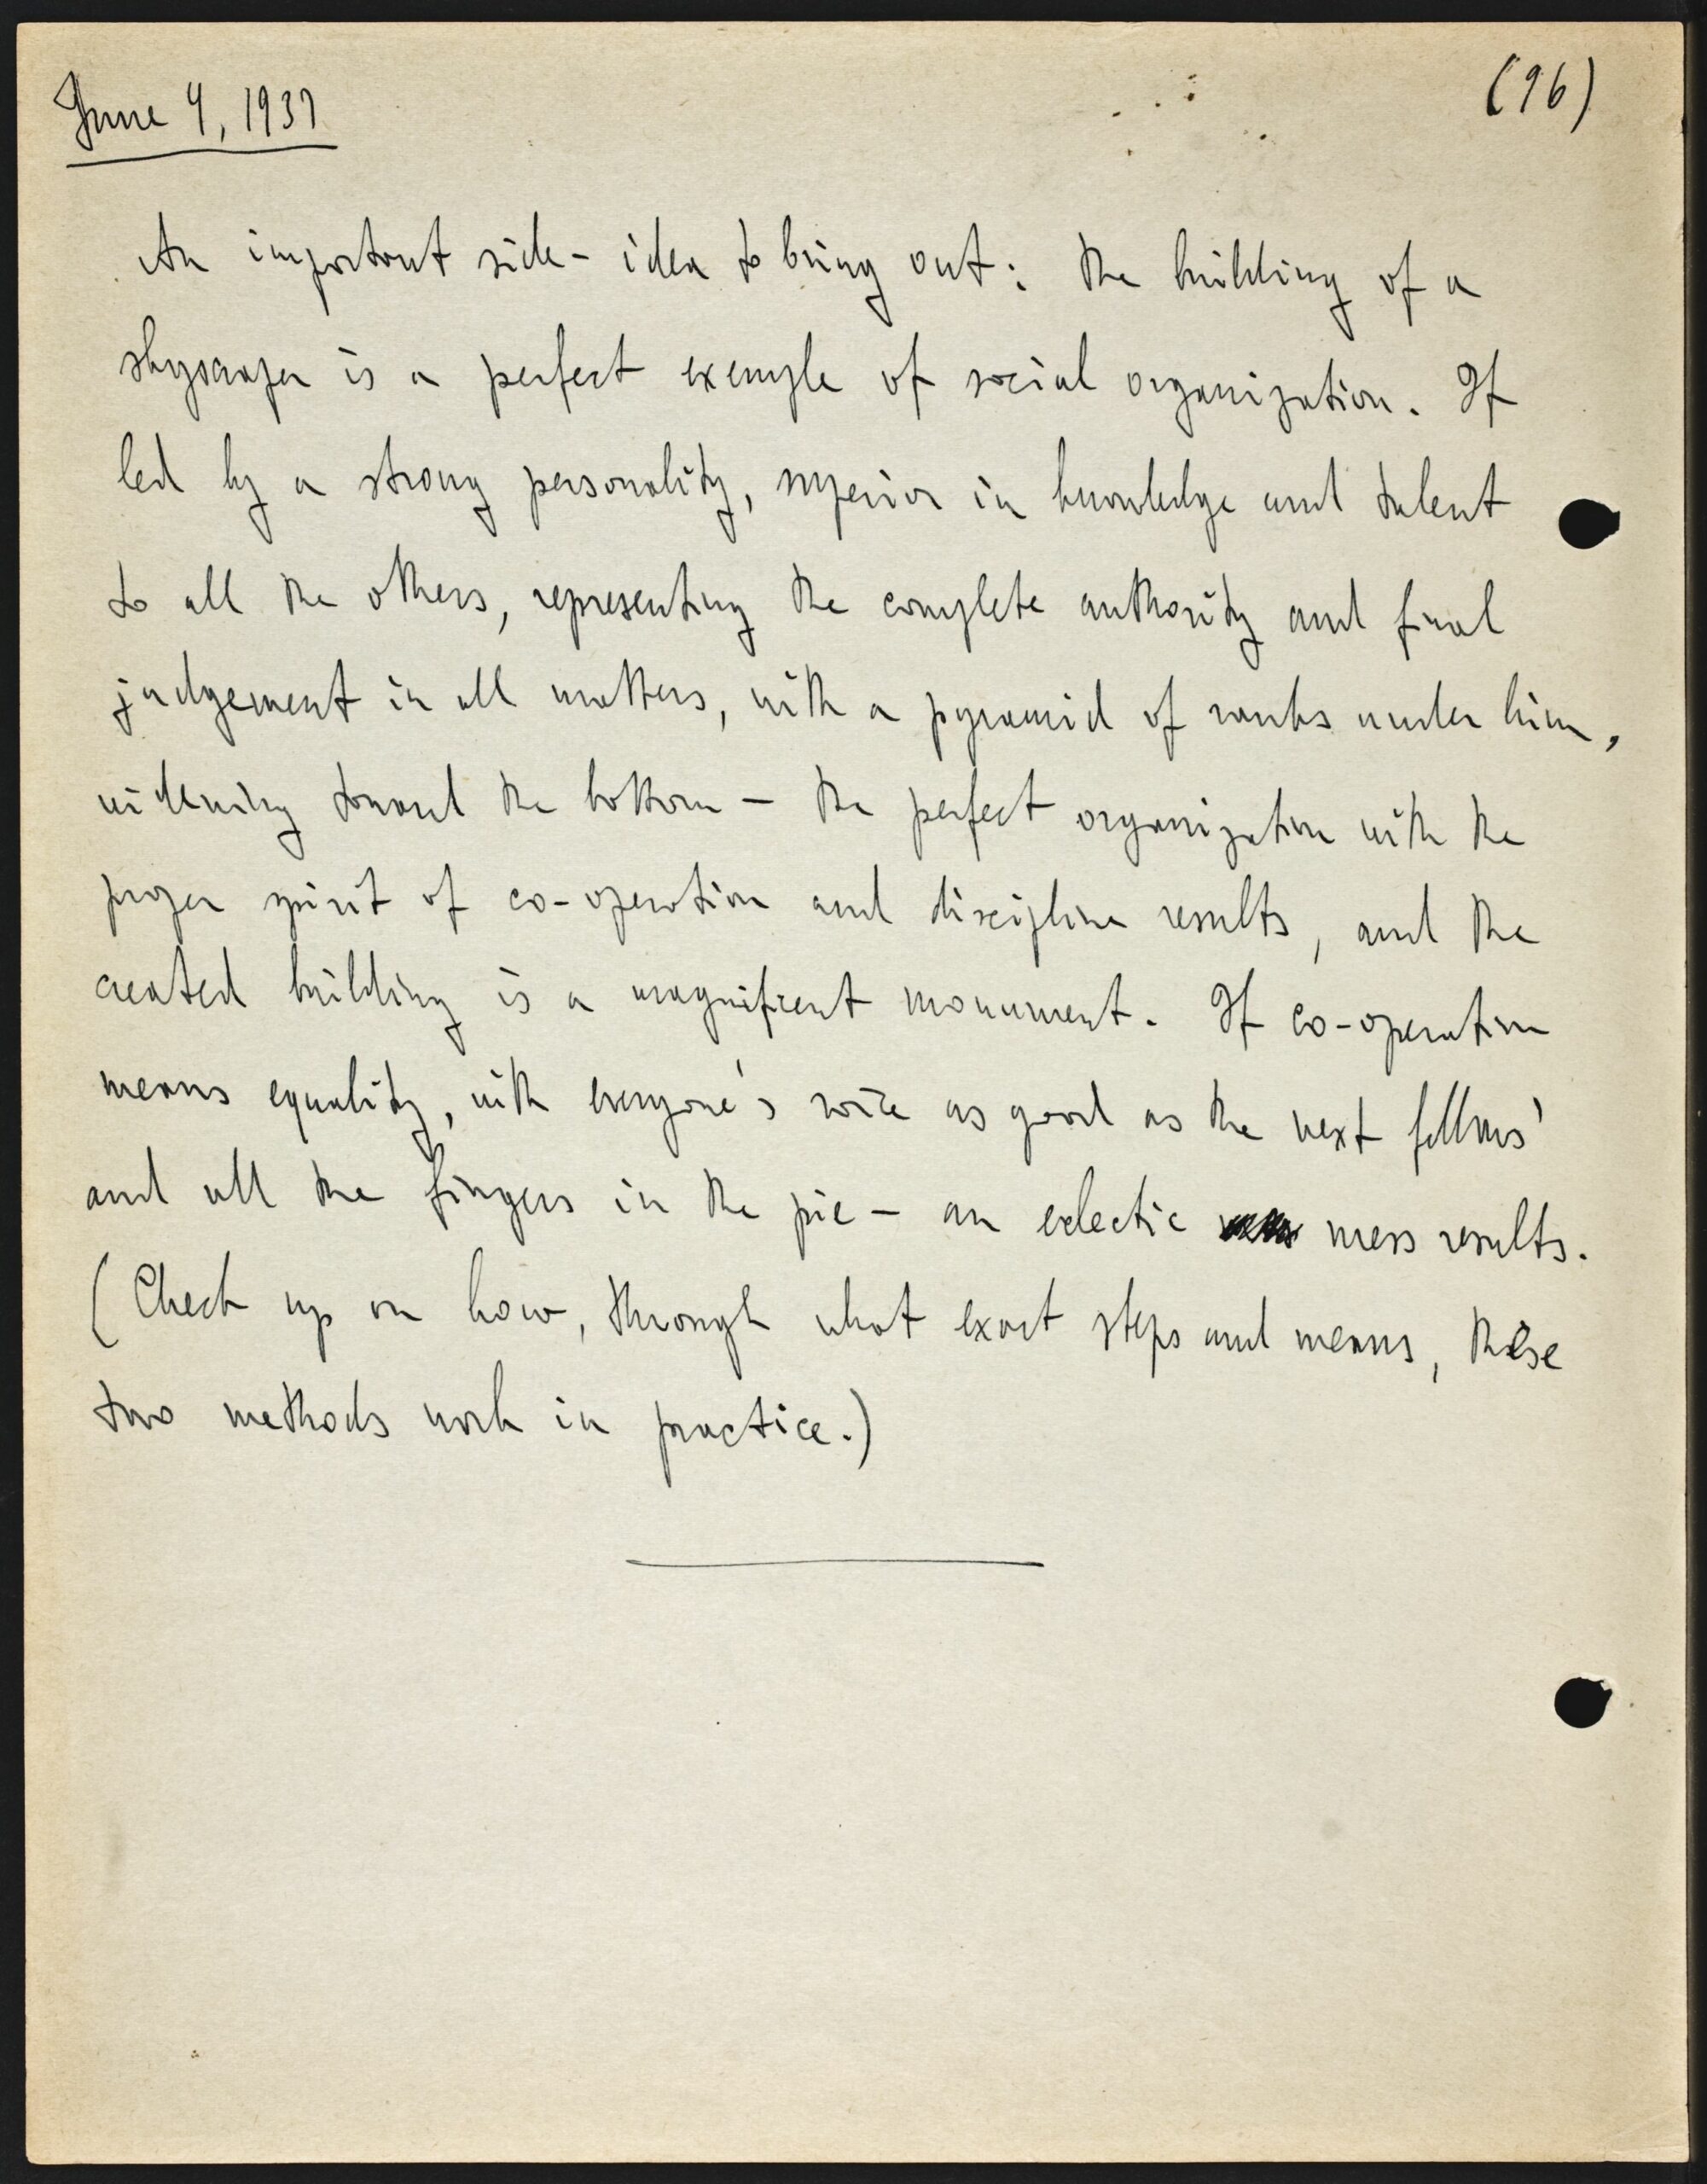 June 4, 1937
(96)
An important side-idea to bring out: the building of a
skyscraper is a perfect example of social organization. If
led by a strong personality, superior in knowledge and talent
to all the others, representing the complete authority and final
judgement in all matters, with a pyramid of ranks under him,
widening toward the bottom — the perfect organization with the
proper spirit of co-operation and discipline results, and the
created building is a magnificent monument. If co-operation
means equality, with everyone's voice as good as the next fellows'
and all the fingers in the pie — an eclectic mess results.
(Check up on how, through what exact steps and means, these
two methods work in practice.)